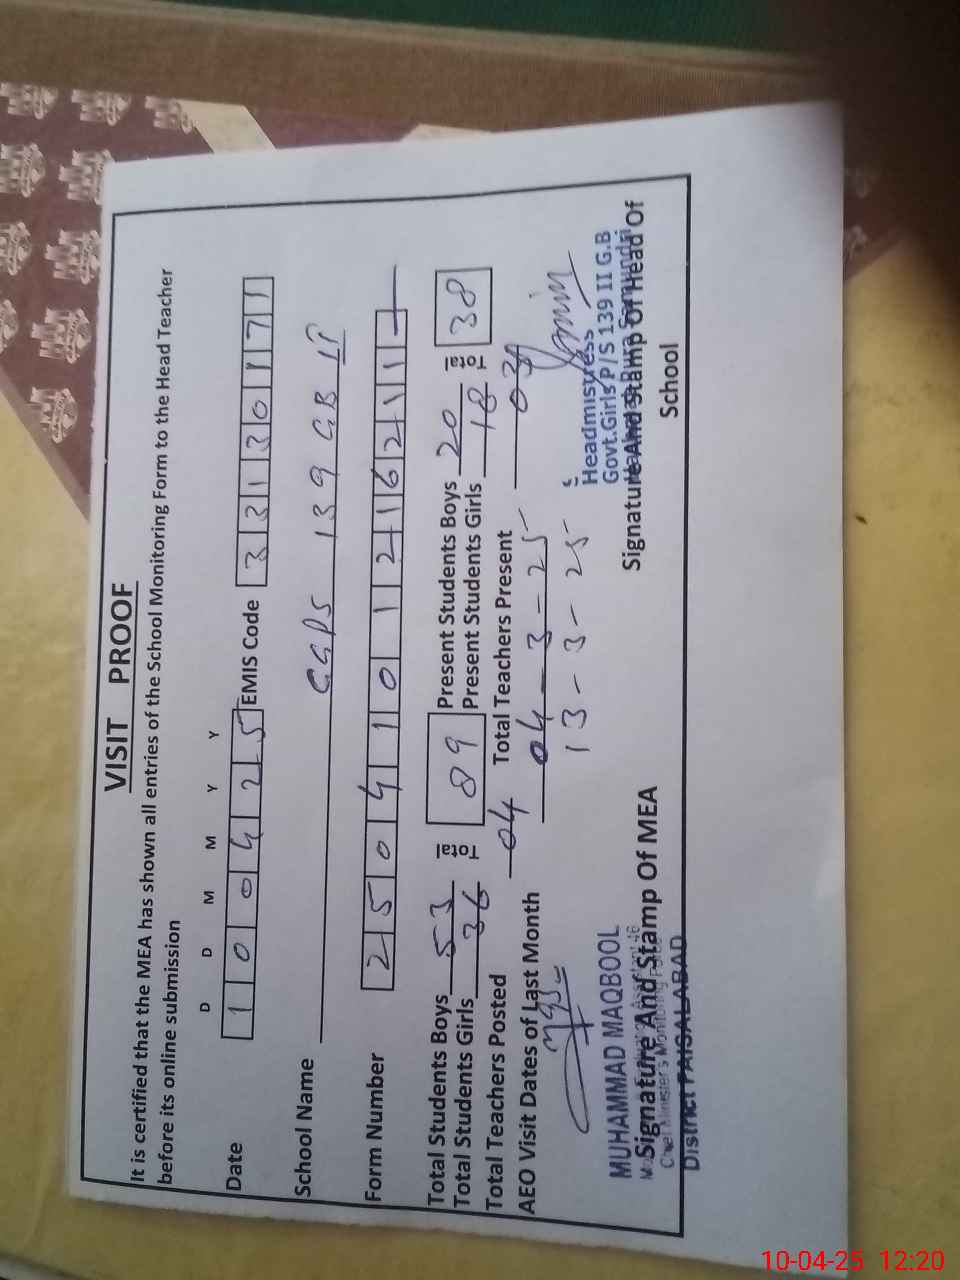 VISIT PROOF
It is certified that the MEA has shown all entries of the School Monitoring Form to the Head Teacher
before its online submission
D D M M Y Y
Date 1 0 0 4 2 5 EMIS Code 3 3 1 3 0 1 7 1
School Name GGPS 139 GB II
Form Number 2 5 0 4 1 0 1 2 1 6 2 1 1
Total Students Boys 53 Total 89 Present Students Boys 20 Total 38
Total Students Girls 36 Present Students Girls 18
Total Teachers Posted 04 Total Teachers Present 03
AEO Visit Dates of Last Month 04-3-25
13-3-25
Headmistress
Govt.Girls P/S 139 II G.B
MUHAMMAD MAQBOOL
Signature And Stamp Of MEA
Signature And Stamp Of Head Of
School
Chief Minister's Monitoring Force
District FAISALABAD
10-04-25 12:20